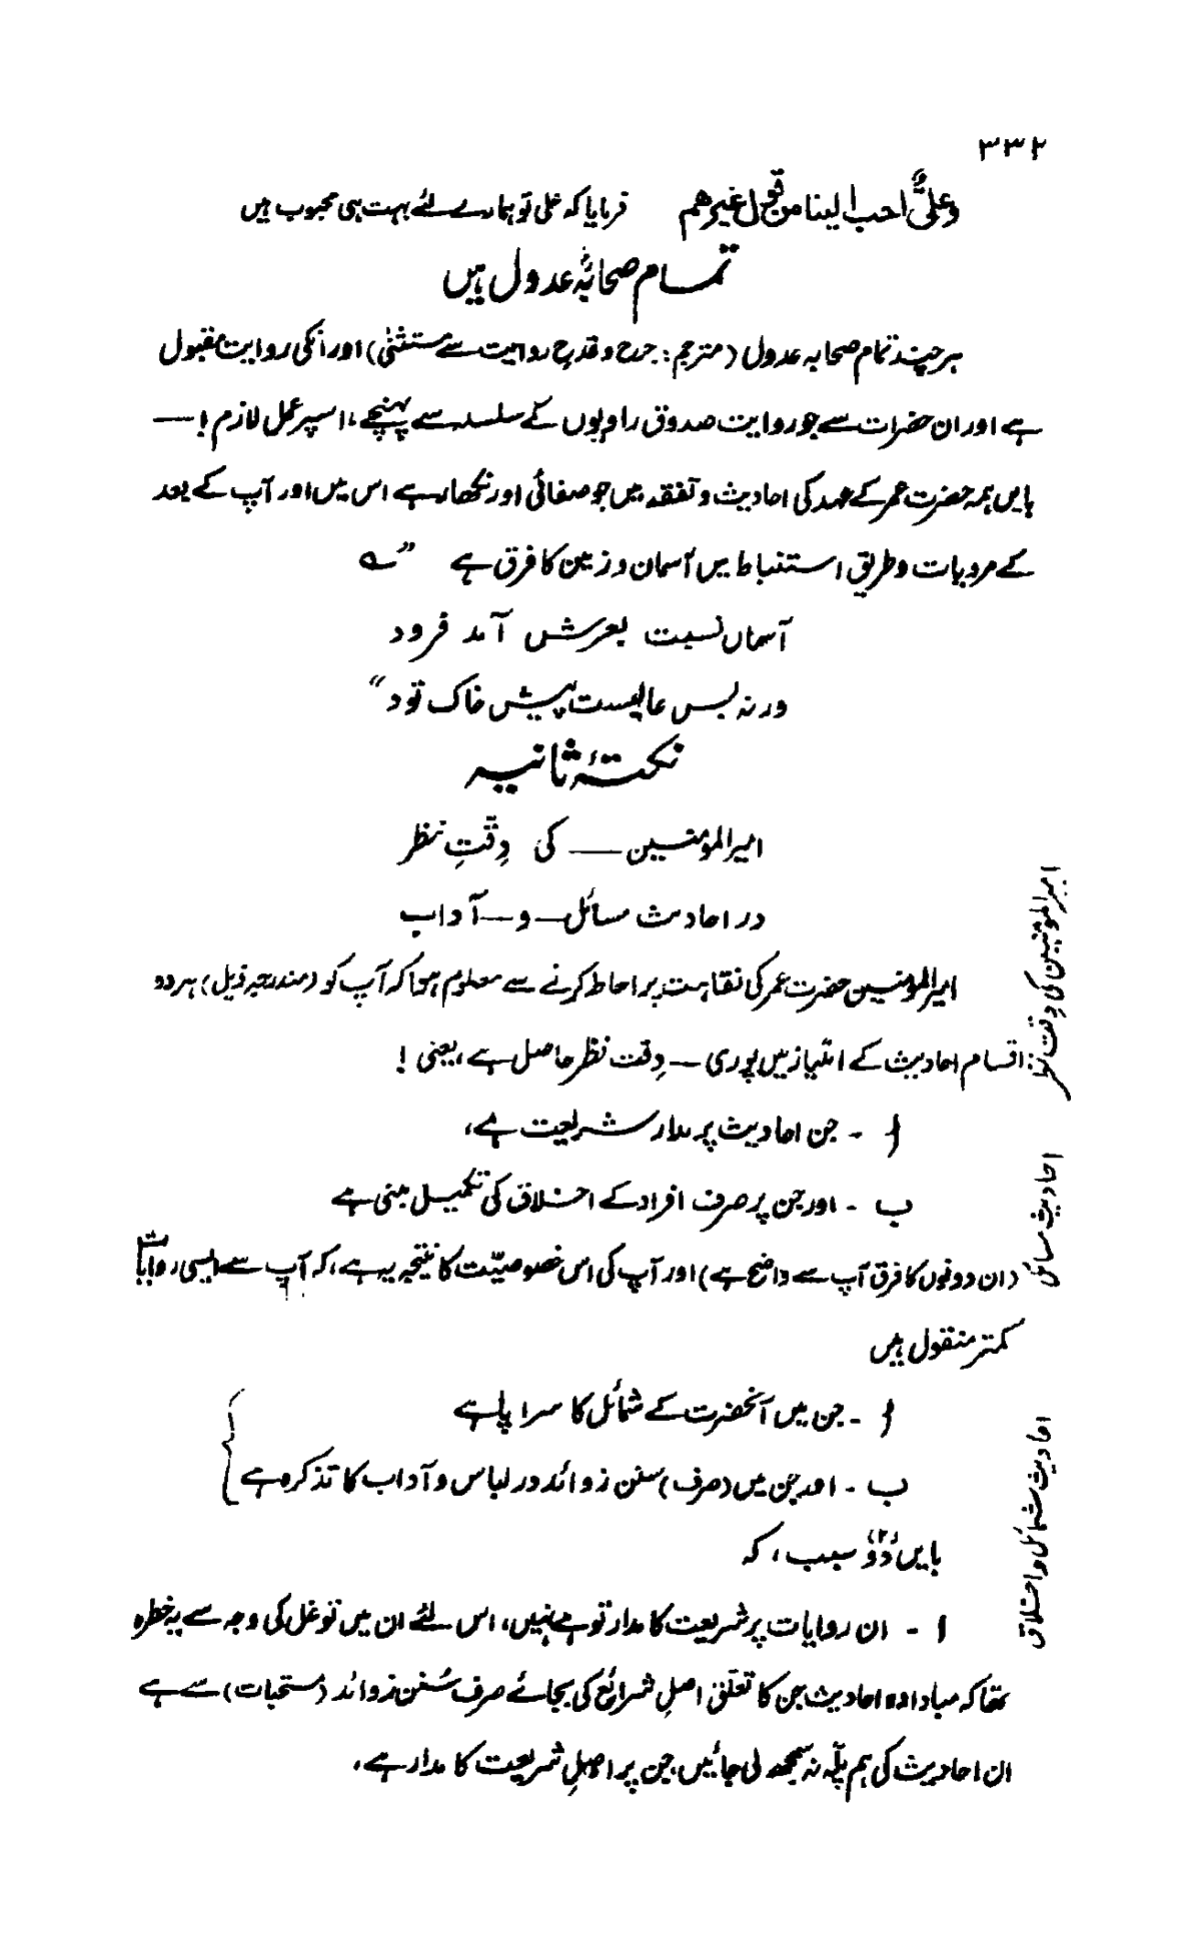 ۳۳۲
وعلیٌّ احب الینا من قول غیرھم فرمایا کہ علی تو ہمارے لئے بہت ہی محبوب ہیں
تمام صحابہؓ عدول ہیں
ہر چند تمام صحابہ عدول (مترجم: جرح و قدح روایت سے مستثنیٰ) اور انکی روایت مقبول
ہے اور ان حضرات سے جو روایت صدوق راویوں کے سلسلہ سے پہنچے، اسپر عمل لازم! —
بایں ہمہ حضرت عمر کے عہد کی احادیث و تفقہ میں جو صفائی اور نکھار ہے اس میں اور آپ کے بعد
کے مرویات و طریق استنباط میں آسمان و زمین کا فرق ہے ”ے
آسماں نسبت بعرش آمد فرود
ورنہ بس عالیست پیش خاک تود“
نکتۂ ثانیہ
امیر المؤمنین — کی دِقّتِ نظر
در احادیث مسائل — و — آداب
امیر المؤمنین کی دِقت نظر
امیر المؤمنین حضرت عمر کی نقاہت پر احاطہ کرنے سے معلوم ہوا کہ آپ کو (مندرجہ ذیل) ہر دو
اقسام احادیث کے امتیاز میں پوری — دِقت نظر حاصل ہے، یعنی!
ا - جن احادیث پر مدار شریعت ہے،
احادیث مسائل
ب - اور جن پر صرف افراد کے اخلاق کی تکمیل مبنی ہے
(ان دونوں کا فرق آپ سے واضح ہے) اور آپ کی اس خصوصیّت کا نتیجہ یہ ہے، کہ آپ سے ایسی روایات
کمتر منقول ہیں
ا - جن میں آنحضرت کے شمائل کا سراپا ہے
احادیث شمائل و اخلاق
ب - اور جن میں (صرف) سنن زوائد در لباس و آداب کا تذکرہ ہے
بایں دُو (۲) سبب، کہ
ا - ان روایات پر شریعت کا مدار تو ہے نہیں، اس لئے ان میں توغل کی وجہ سے یہ خطرہ
تھا کہ مبادا وہ احادیث جن کا تعلق اصلِ شرائع کی بجائے صرف سُنن زوائد (مستحبات) سے ہے
ان احادیث کی ہم پلّہ نہ سمجھ لی جائیں، جن پر اصلِ شریعت کا مدار ہے،